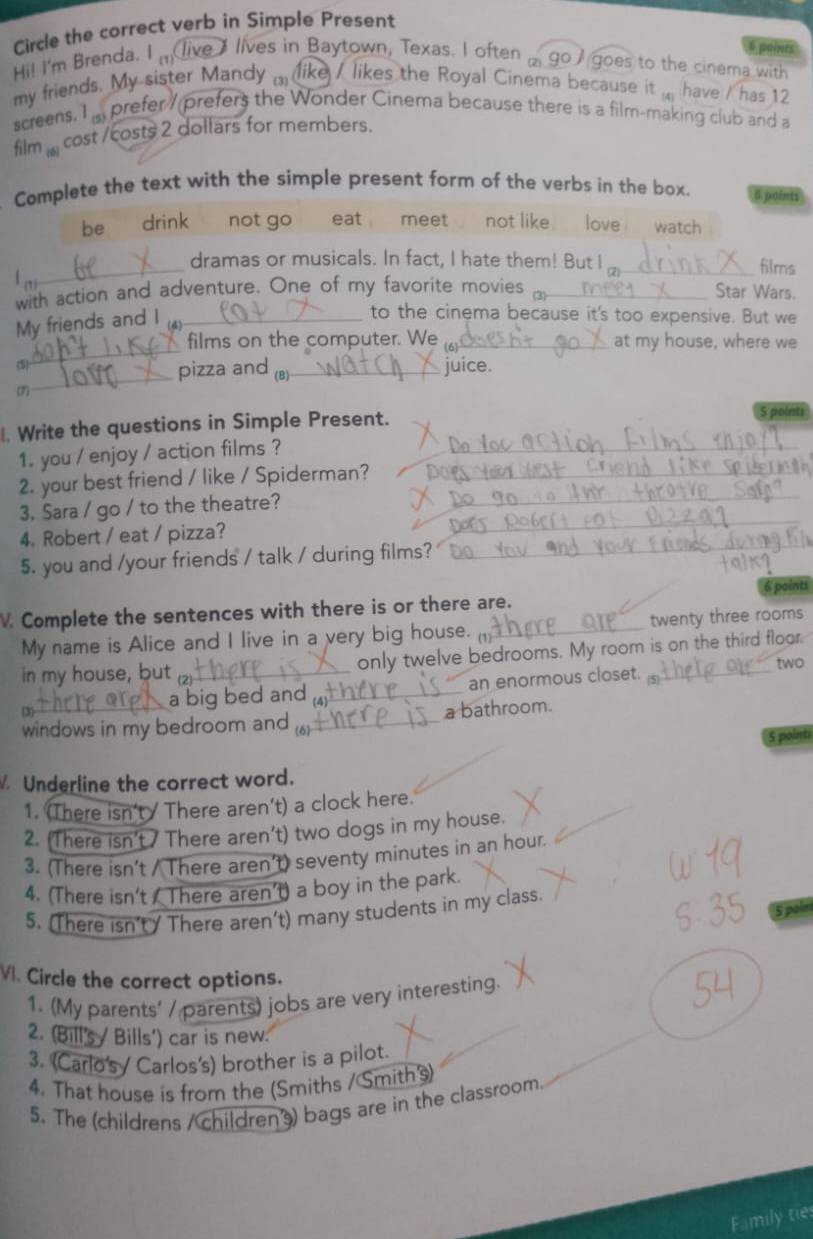 Circle the correct verb in Simple Present
6 points
Hi! I'm Brenda. I (1) live / lives in Baytown, Texas. I often (2) go / goes to the cinema with
my friends. My sister Mandy (3) like / likes the Royal Cinema because it (4) have / has 12
screens. I (5) prefer / prefers the Wonder Cinema because there is a film-making club and a
film (6) cost / costs 2 dollars for members.
Complete the text with the simple present form of the verbs in the box.
8 points
be drink not go eat meet not like love watch
I (1) be X dramas or musicals. In fact, I hate them! But I (2) drink X films
with action and adventure. One of my favorite movies (3) meet X Star Wars.
My friends and I (4) eat X to the cinema because it's too expensive. But we
(5) don't like X films on the computer. We (6) doesn't go X at my house, where we
(7) love X pizza and (8) watch X juice.
I. Write the questions in Simple Present.
5 points
1. you / enjoy / action films ? X Do You action Films enjoy?
2. your best friend / like / Spiderman? Does your best friend like spiderman
3. Sara / go / to the theatre? X Do go to the theatre Sara?
4. Robert / eat / pizza? Does Robert eat pizza?
5. you and /your friends / talk / during films? Do You and your friends during film
talk?
6 points
V. Complete the sentences with there is or there are.
My name is Alice and I live in a very big house. (1) there are twenty three rooms
in my house, but (2) there is X only twelve bedrooms. My room is on the third floor.
(3) there are X a big bed and (4) there is an enormous closet. (5) there are two
windows in my bedroom and (6) there is a bathroom.
5 points
V. Underline the correct word.
1. (There isn't / There aren't) a clock here.
2. (There isn't / There aren't) two dogs in my house. X
3. (There isn't / There aren't) seventy minutes in an hour.
4. (There isn't / There aren't) a boy in the park. X
5. (There isn't / There aren't) many students in my class. X
W 19
S 35
5 poin
54
VI. Circle the correct options.
1. (My parents' / parents) jobs are very interesting. X
2. (Bill's / Bills') car is new.
3. (Carlo's / Carlos's) brother is a pilot. X
4. That house is from the (Smiths / Smith's)
5. The (childrens / children's) bags are in the classroom.
Family ties